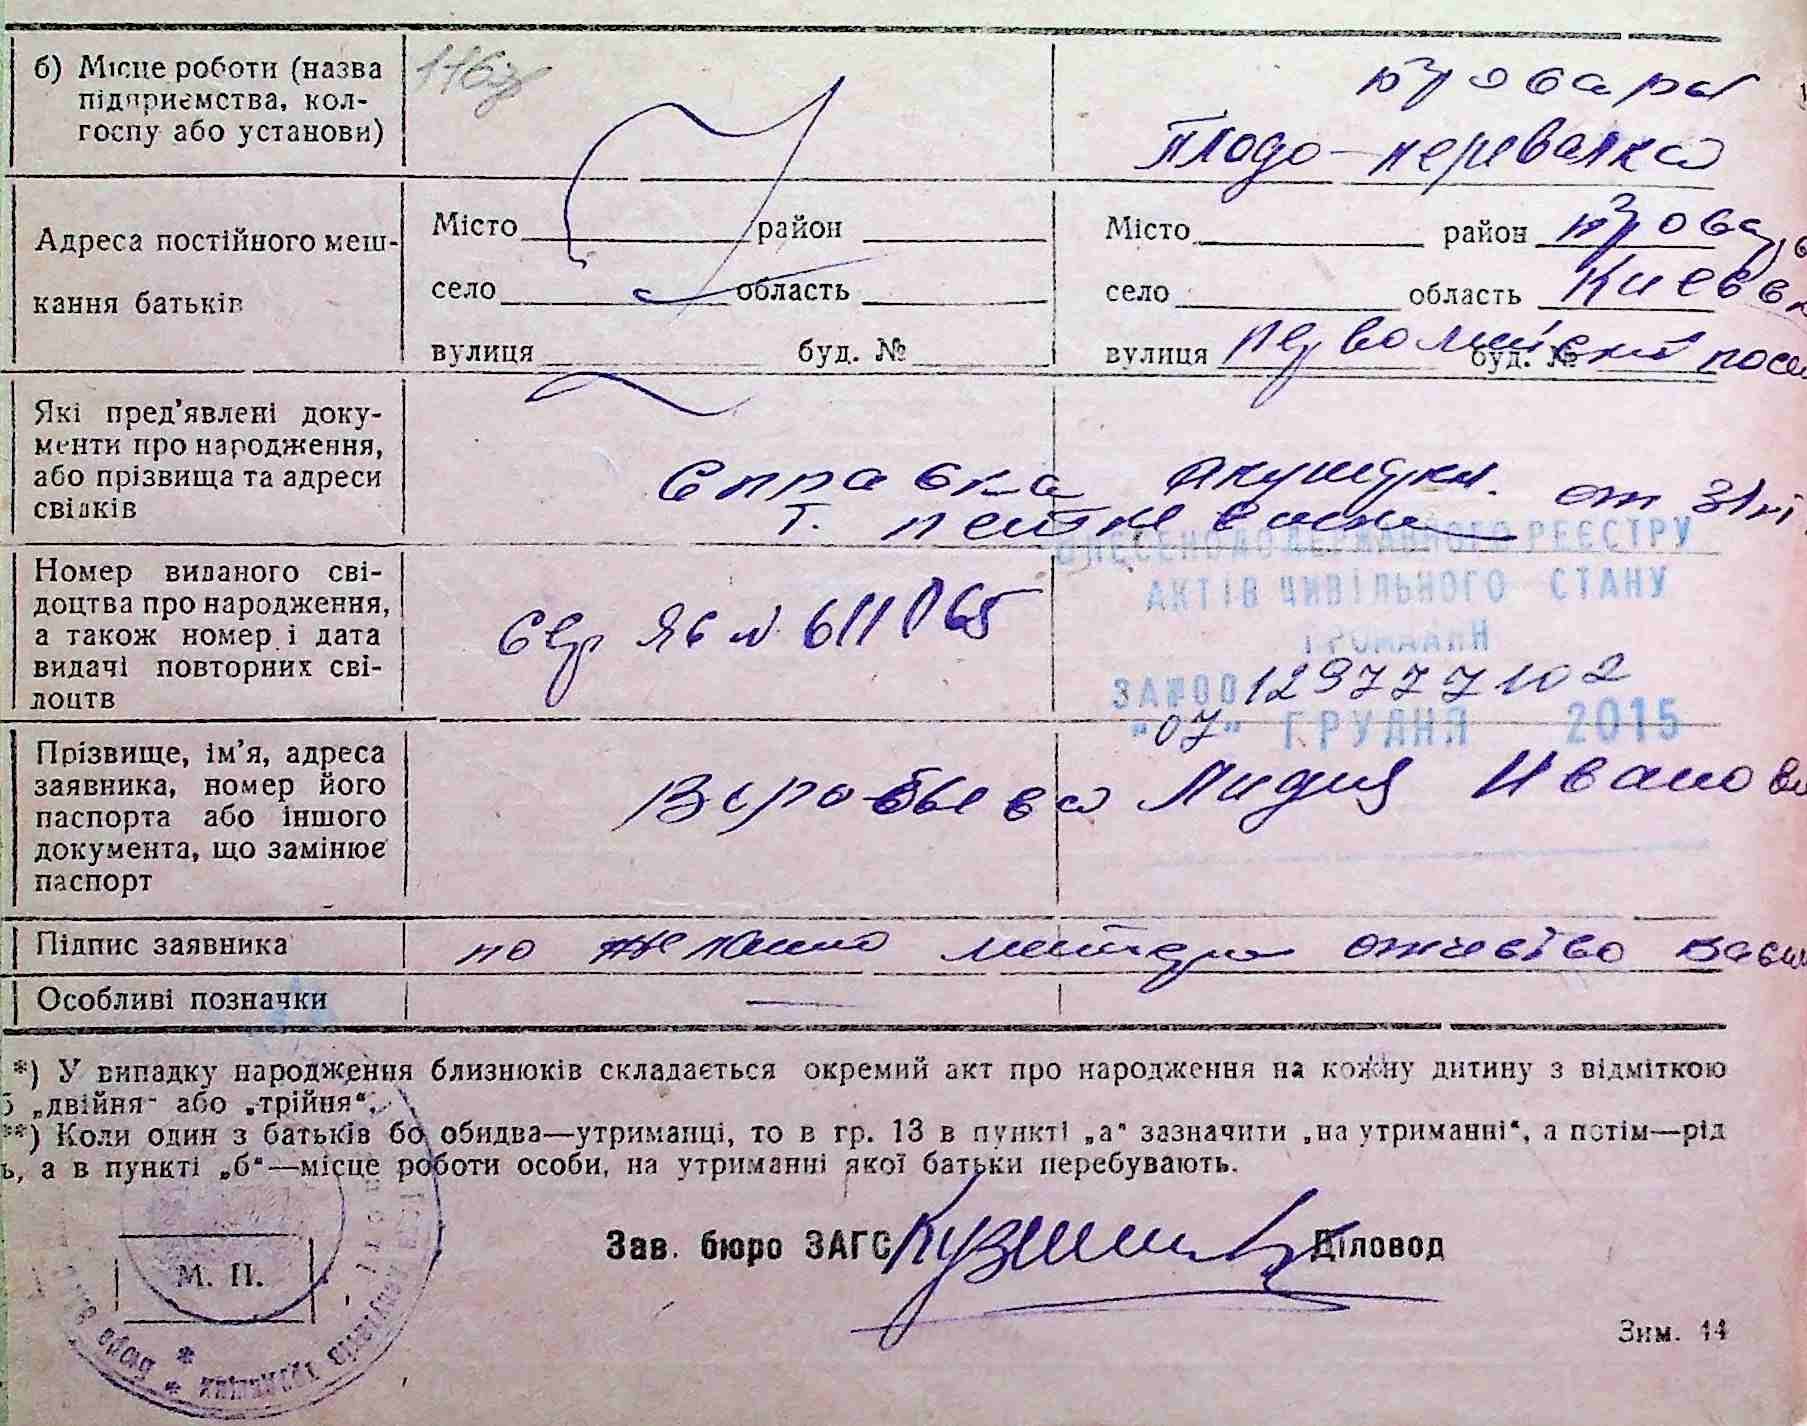 б) Місце роботи (назва
підприємства, кол-
госпу або установи)
Бровары
Плодо-перевалка
Адреса постійного меш-
кання батьків
Місто район
село область
вулиця буд. №
Місто район Бровар
село область Киевск
вулиця первомайский посел буд. №
Які пред’явлені доку-
менти про народження,
або прізвища та адреси
свідків
Справка акушерки. от 31
Номер виданого сві-
доцтва про народження,
а також номер і дата
видачі повторних сві-
доцтв
ЯБ № 611065
ВНЕСЕНО ДО ДЕРЖАВНОГО РЕЄСТРУ
АКТІВ ЦИВІЛЬНОГО СТАНУ
ГРОМАДЯН
ЗА №00129777102
"07" ГРУДНЯ 2015
Прізвище, ім’я, адреса
заявника, номер його
паспорта або іншого
документа, що замінює
паспорт
Воробьева Лидия Ивановн
Підпис заявника
по желанию матери отчество Васил
Особливі позначки
*) У випадку народження близнюків складається окремий акт про народження на кожну дитину з відміткою
„двійня“ або „трійня“.
**) Коли один з батьків бо обидва—утриманці, то в гр. 13 в пункті „а“ зазначити „на утриманні“, а потім—рід
ь, а в пункті „б“—місце роботи особи, на утриманні якої батьки перебувають.
Зав. бюро ЗАГС Діловод
М. П.
Зим. 14